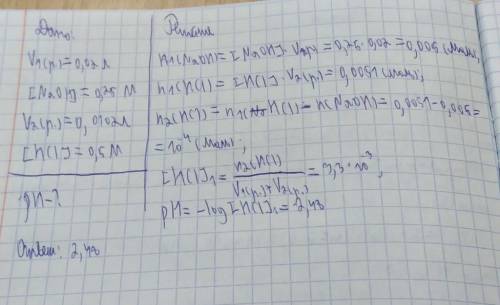 Дано:
V₁(р.)=0,02 л
[NaOH]=0,25 М
V₂(р.)=0,0102 л
[HCl]=0,5 М
pH-?
Ответ: 2,48
Решение
n₁(NaOH)=[NaOH]·V₁(р.)=0,25·0,02=0,005 (моль);
n₁(HCl)=[HCl]·V₂(р.)=0,0051 (моль);
n₂(HCl)=n₁(HCl)-n(NaOH)=0,0051-0,005=
=10⁻⁴ (моль);
[HCl]₁=n₂(HCl)/(V₁(р.)+V₂(р.))=3,3·10⁻³;
pH=-log[HCl]₁=2,48